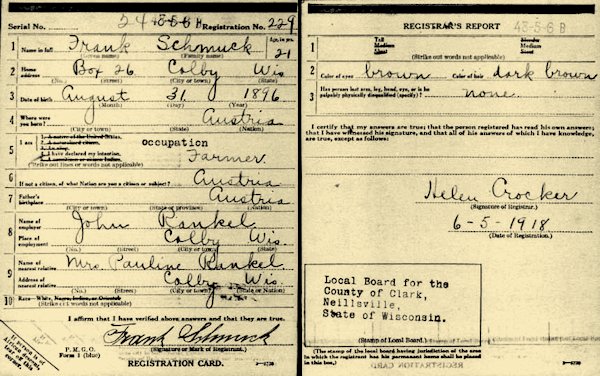 Registration No. 229
1 Name in full Frank Schmuck Age, in yrs. 21
(Given name) (Family name)
2 Home address Box 26 Colby Wis
(No.) (Street) (City or town) (State)
3 Date of birth August 31 1896
(Month) (Day) (Year)
4 Where were you born? Austria
(City or town) (State) (Nation)
5 I am
1. A native of the United States.
2. A naturalized citizen.
3. An alien.
4. I have declared my intention.
(Strike out lines or words not applicable)
occupation
Farmer
6 If not a citizen, of what Nation are you a citizen or subject? Austria
7 Father's birthplace Austria
(City or town) (State or province) (Nation)
8 Name of employer John Rankel
Place of employment Colby Wis.
(No.) (Street) (City or town) (State)
9 Name of nearest relative Mrs. Pauline Rankel
Address of nearest relative Colby Wis.
(No.) (Street) (City or town) (State or Nation)
10 Race—White, Negro, Indian, or Oriental
(Strike out words not applicable)
I affirm that I have verified above answers and that they are true.
Frank Schmuck
P. M. G. O.
Form 1 (blue)
(Signature or Mark of Registrant.)
REGISTRATION CARD.
REGISTRAR'S REPORT 43-5-6 B
1 Tall Slender
Medium Medium
Short Stout
(Strike out words not applicable)
2 Color of eyes brown Color of hair dark brown
3 Has person lost arm, leg, hand, eye, or is he palpably physically disqualified (specify)? none.
I certify that my answers are true; that the person registered has read his own answers;
that I have witnessed his signature, and that all of his answers of which I have knowledge,
are true, except as follows:
Helen Crocker
(Signature of Registrar.)
6-5-1918
(Date of Registration.)
Local Board for the
County of Clark,
Neillsville,
State of Wisconsin.
(Stamp of Local Board.)
(The stamp of the local board having jurisdiction of the area
in which the registrant has his permanent home shall be placed
in this box.)
REGISTRATION CARD